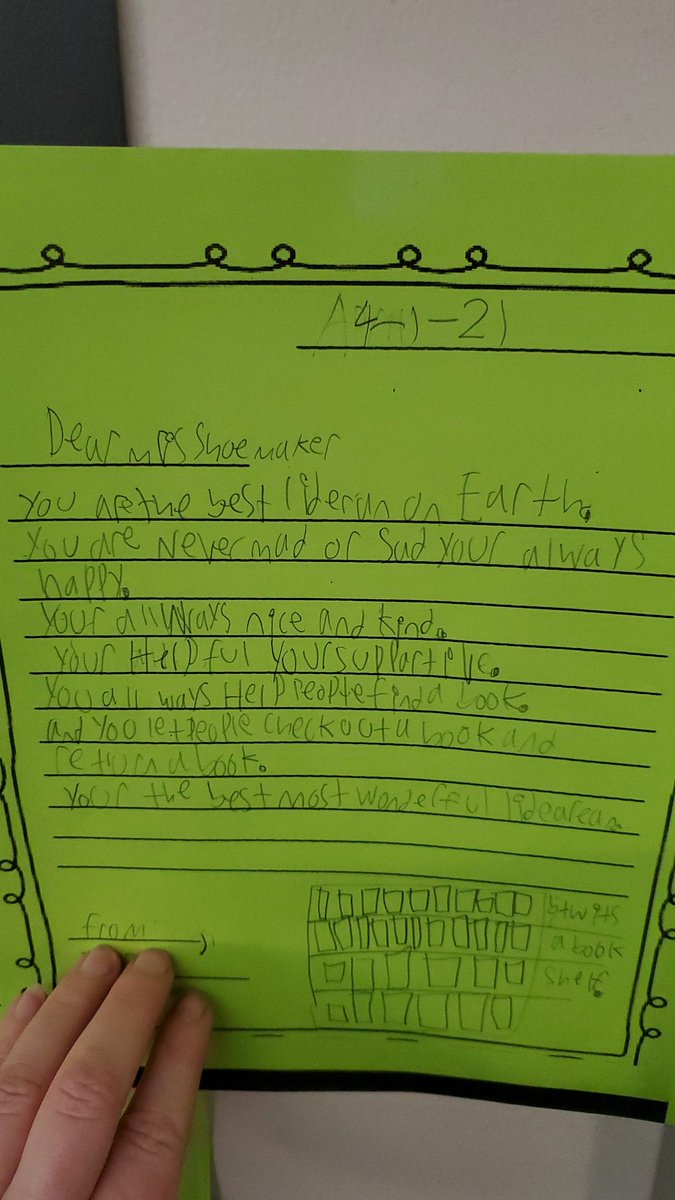 4-1-21
Dear mrs Shoemaker
You are the best liderian on Earth.
You are Never mad or Sad your always
happy.
Your allways nice and kind.
Your Helpful Your supportive.
You all ways Help people find a book.
and you let people check out a book and
return a book.
Your the best most wonderful lidearean.
from
,
btw its
a book
shelf.